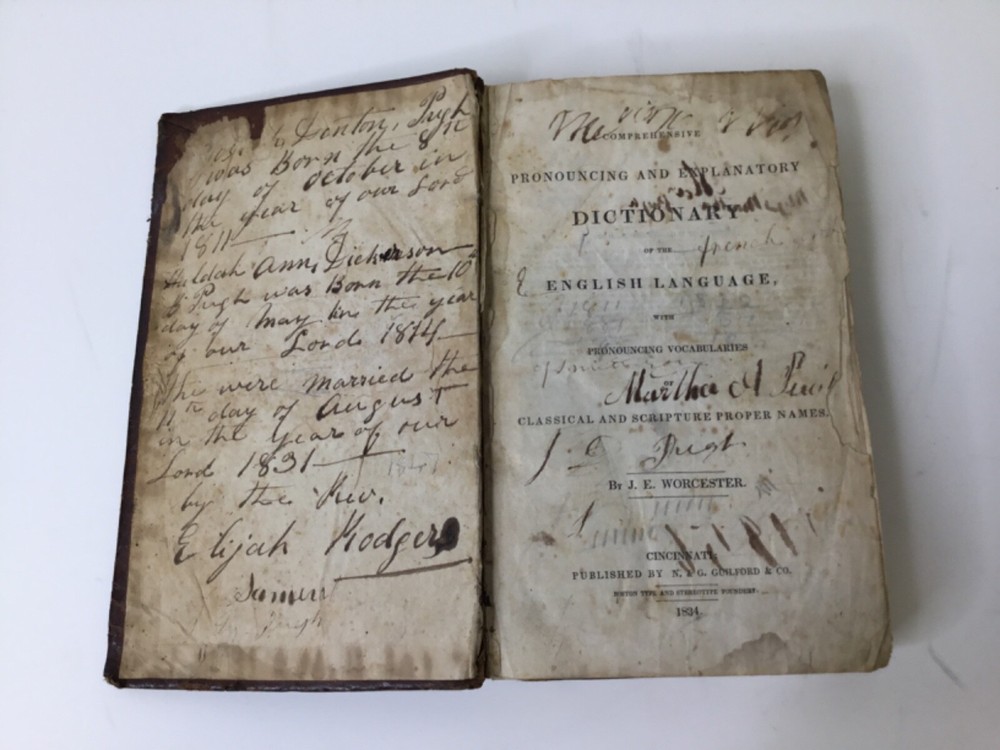 Denton, Pugh
was Born the 8th
day of October in
the year of our Lord
1811
Huldah Ann, Dickerson
B Pugh was Born the 10th
day of May in the year
of our Lord 1814
The were married the
11th day of August
in the year of our
Lord 1831
by the Rev,
Elijah Rodgers
James
Pugh
COMPREHENSIVE
PRONOUNCING AND EXPLANATORY
DICTIONARY
OF THE
french
ENGLISH LANGUAGE,
WITH
PRONOUNCING VOCABULARIES
OF
Martha A
CLASSICAL AND SCRIPTURE PROPER NAMES.
J D Pugh
By J. E. WORCESTER.
CINCINNATI:
PUBLISHED BY N. & G. GUILFORD & CO.
BOSTON TYPE AND STEREOTYPE FOUNDERY.
1834.